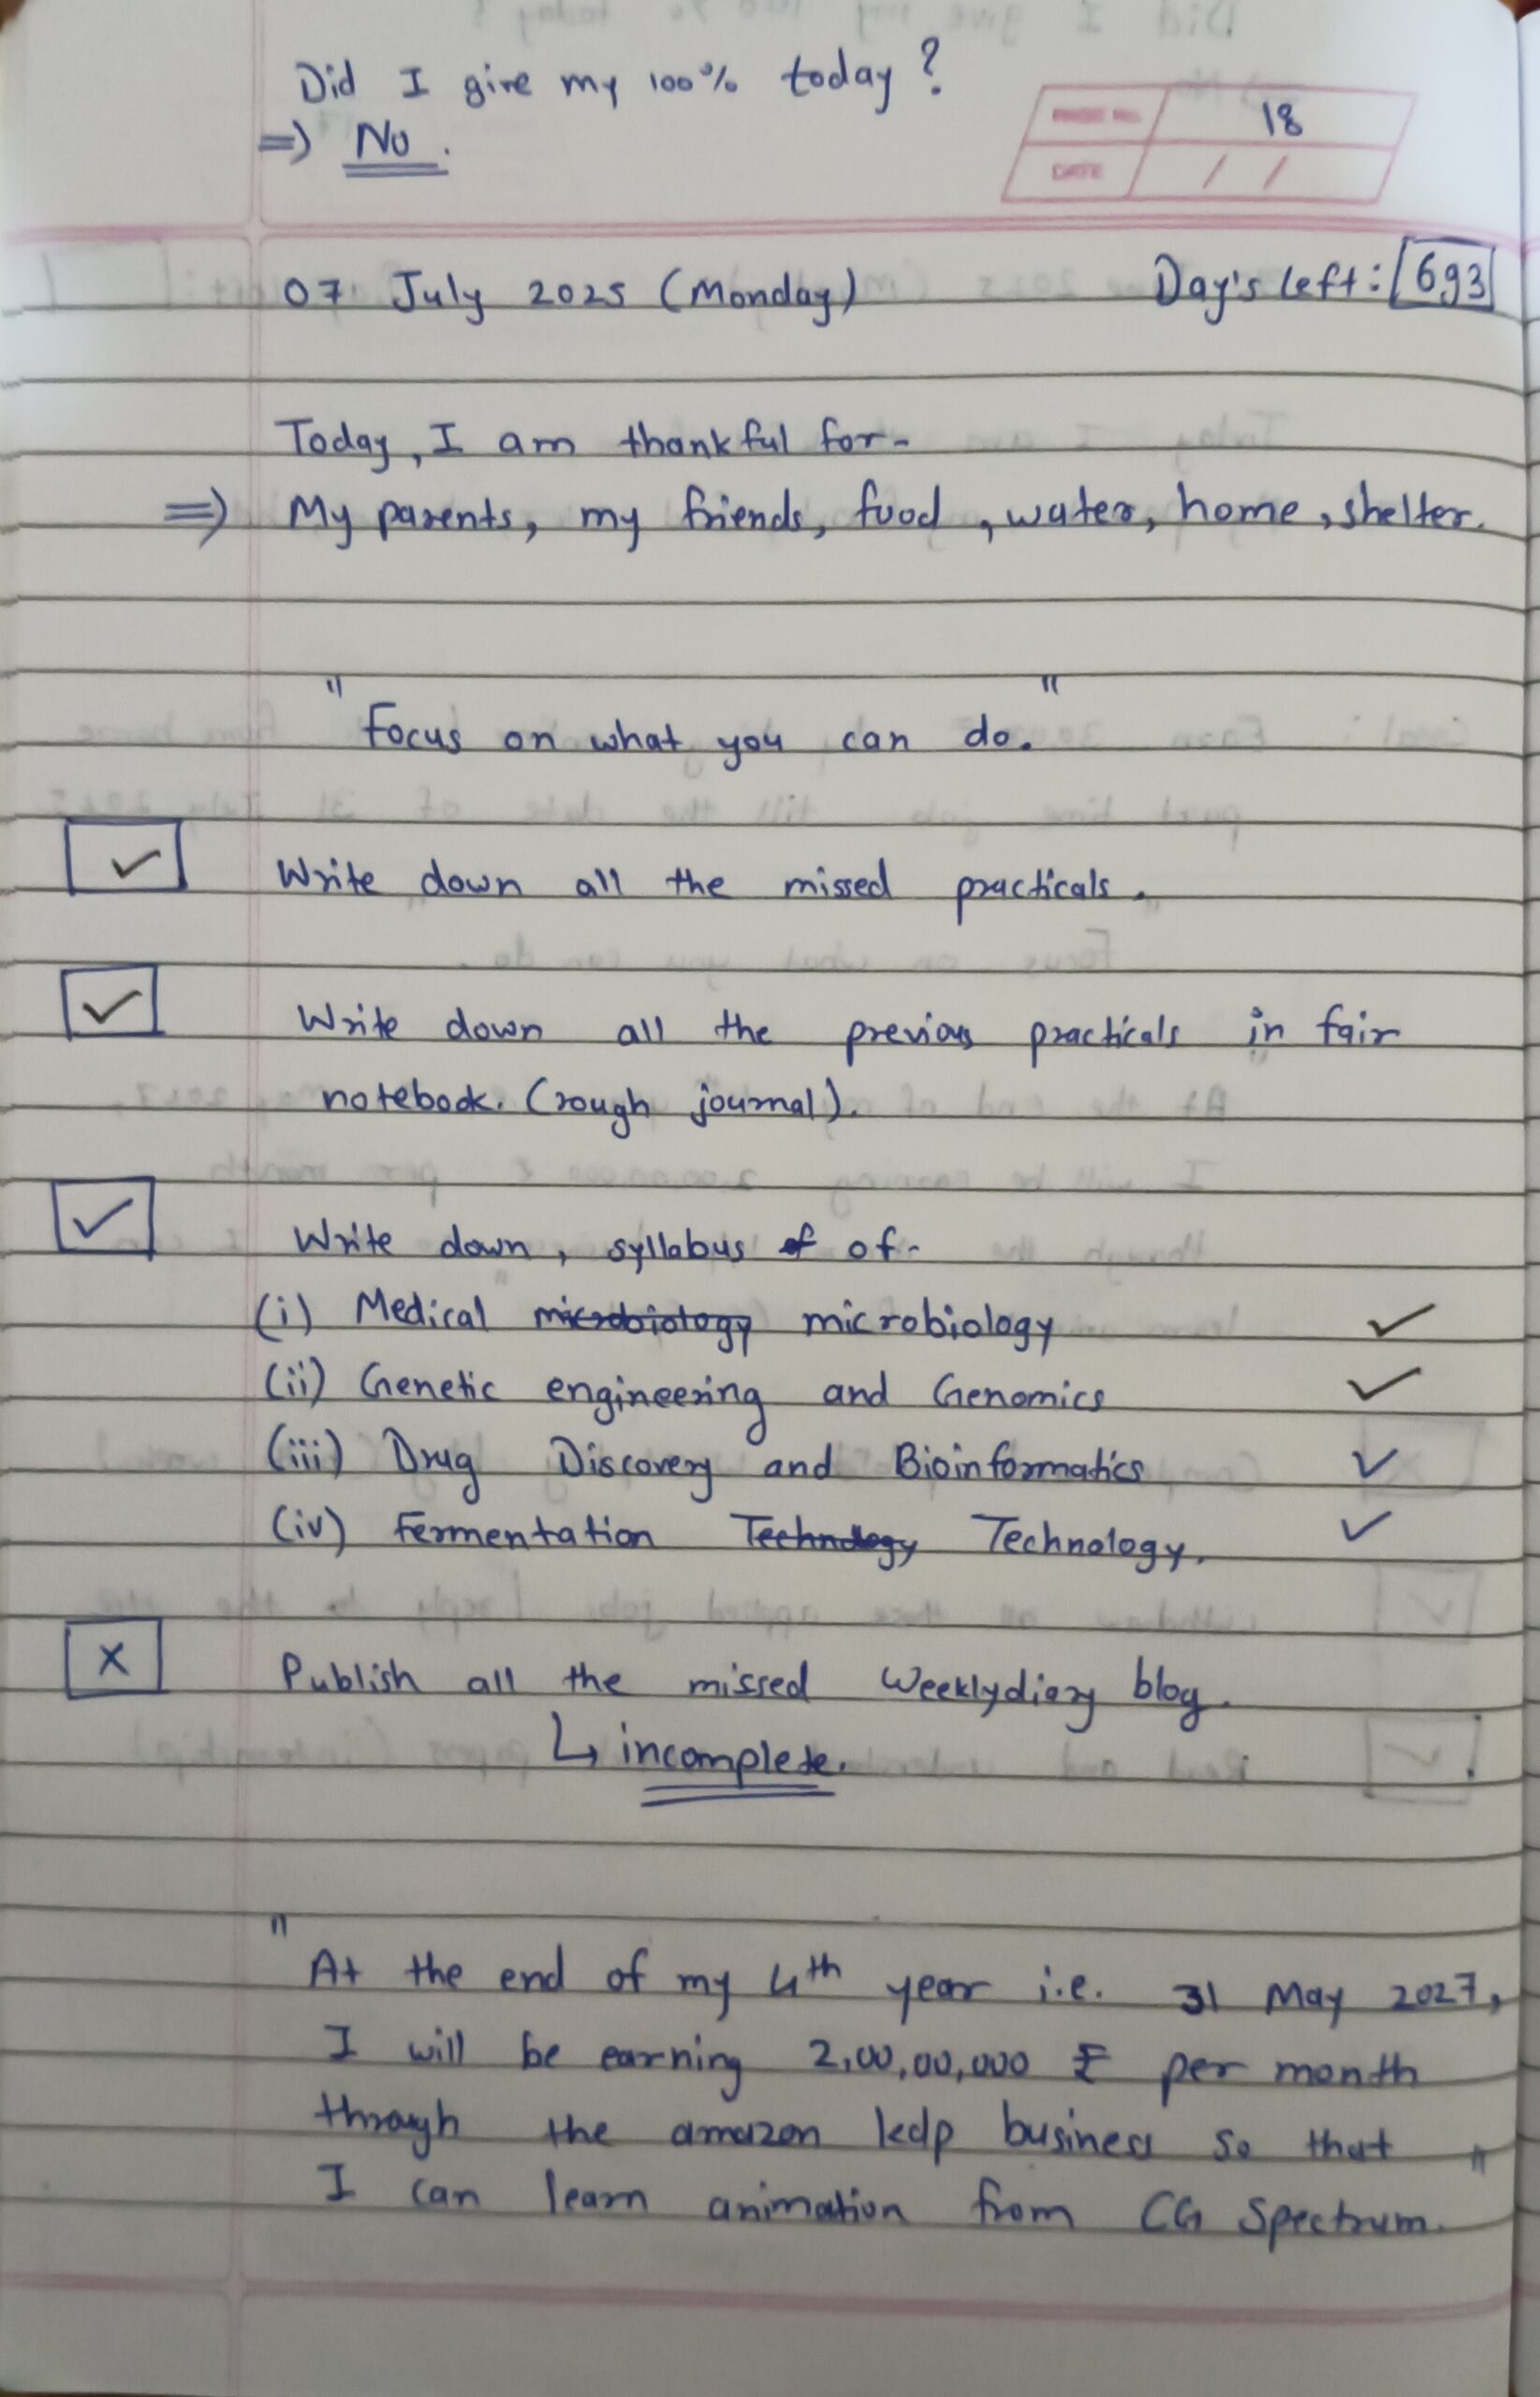 Did I give my 100% today?
=> No.
PAGE NO. 18
DATE / /
07 July 2025 (Monday) Day's left: 693
Today, I am thankful for-
=> My parents, my friends, food, water, home, shelter.
"Focus on what you can do."
✓ Write down all the missed practicals.
✓ Write down all the previous practicals in fair
notebook. (rough journal).
✓ Write down, syllabus of of-
(i) Medical microbiology microbiology ✓
(ii) Genetic engineering and Genomics ✓
(iii) Drug Discovery and Bioinformatics ✓
(iv) Fermentation Technology Technology. ✓
x Publish all the missed Weeklydiary blog.
↳ incomplete.
"At the end of my 4th year i.e. 31 May 2027,
I will be earning 2,00,00,000 ₹ per month
through the amazon kdp business so that
I can learn animation from CG Spectrum."